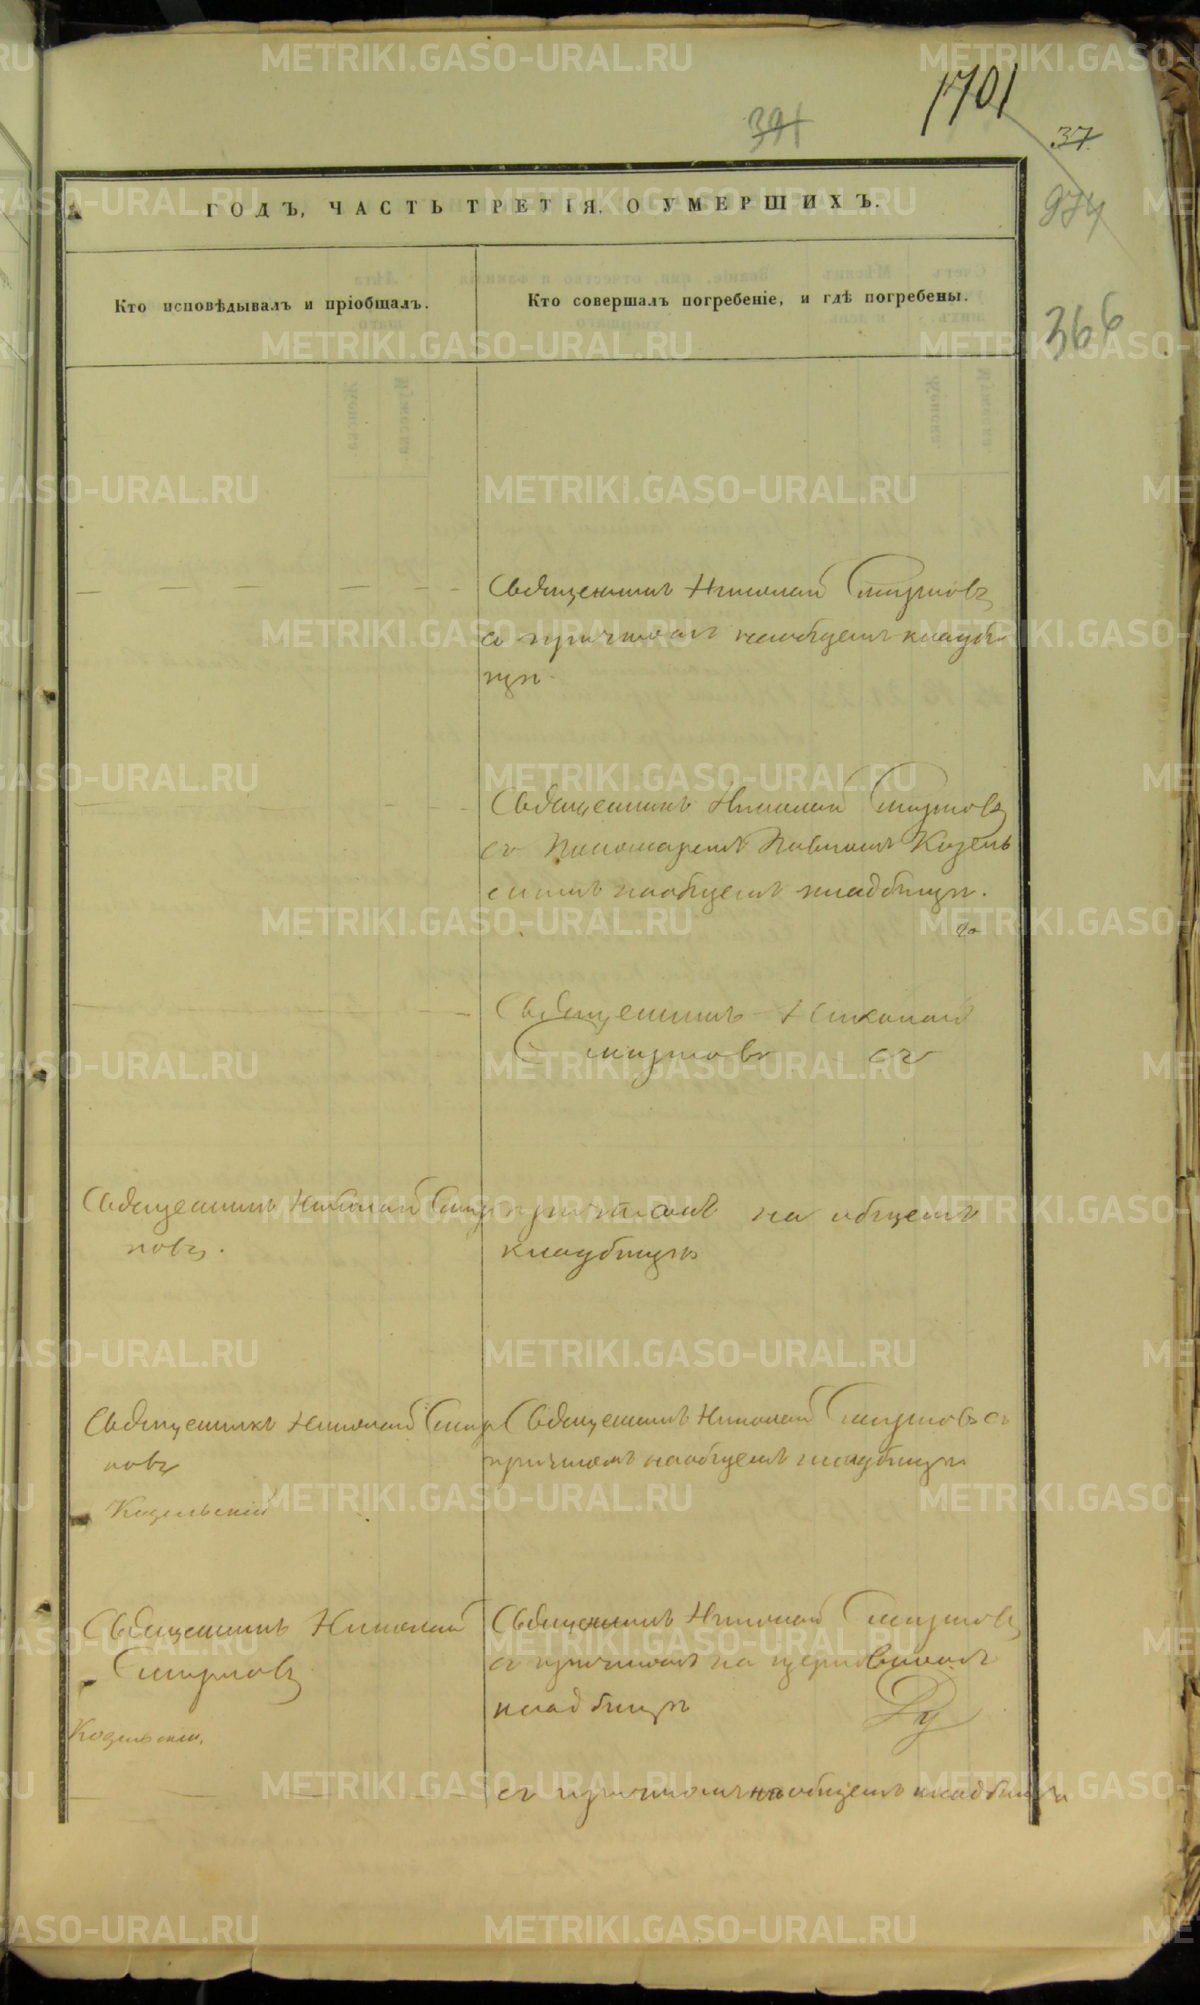 1701
391
37
974
366
ГОДЪ, ЧАСТЬ ТРЕТІЯ, О УМЕРШИХЪ.
Кто исповѣдывалъ и пріобщалъ.
Кто совершалъ погребеніе, и гдѣ погребены.
Священникъ Николай Смирновъ
съ причтомъ на общемъ кладби
щѣ.
Священникъ Николай Смирновъ
съ Пономаремъ Павломъ Козель
скимъ на общемъ кладбищѣ.
Священникъ Николай
Смирновъ съ
Священникъ Николай Смир
новъ.
причтомъ на общемъ
кладбищѣ
Священникъ Николай Смир
новъ
Козельскій
Священникъ Николай Смирновъ съ
причтомъ на общемъ кладбищѣ
Священникъ Николай
Смирновъ
Козельскій.
Священникъ Николай Смирновъ
съ причтомъ на церковномъ
кладбищѣ
съ причтомъ на общемъ кладбищѣ
METRIKI.GASO-URAL.RU